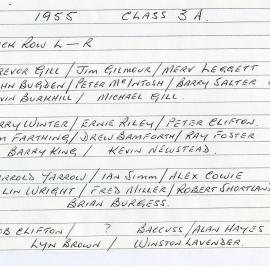 1955 CLASS 3A.
CK ROW L - R
REVOR GILL / JIM GILMOUR / MERV LEGGETT
HN BUGDEN / PETER McINTOSH / BARRY SALTER
VIN BURKHILL / MICHAEL GILL.
RRY WINTER / ERNIE RILEY / PETER CLIFTON.
M FARTHING / DREW BAMFORTH / RAY FOSTER
BARRY KING / KEVIN NEWSTEAD.
RROLD YARROW / IAN SIMM / ALEX COWIE
LIN WRIGHT / FRED MILLER / ROBERT SHORTLAN
BRIAN BURGESS.
OB CLIFTON / ? BACCUSS / ALAN HAYES
LYN BROWN / WINSTON LAVENDER.